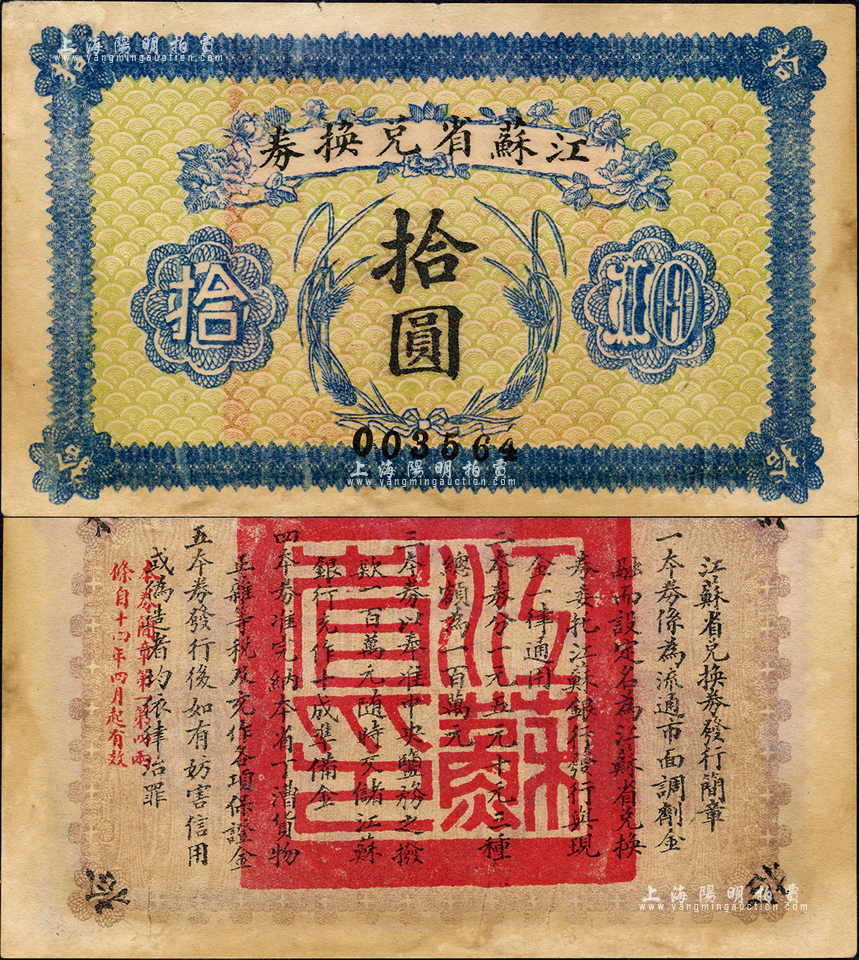 上海陽明拍賣
www.yangmingauction.com
拾
拾
江蘇省兌換券
拾圓
拾
10
拾
拾
003564
上海陽明拍賣
www.yangmingauction.com
江蘇省兌換券發行簡章
一本券係為流通市面調劑金
融而設定名為江蘇省兌換
券委托江蘇銀行發行與現
金一律通用
二本券分一元五元十元三種
總額為一百萬元
三本券以奉准中央鹽務之撥
款一百萬元隨時交儲江蘇
銀行充作十成準備金
四本券准完納本省丁漕貨物
正雜等稅及充作各項保證金
五本券發行後如有妨害信用
或偽造者均依律治罪
本券簡章第一第四兩
條自十四年四月起有效
江蘇
官印
上海陽明拍賣
www.yangmingauction.com